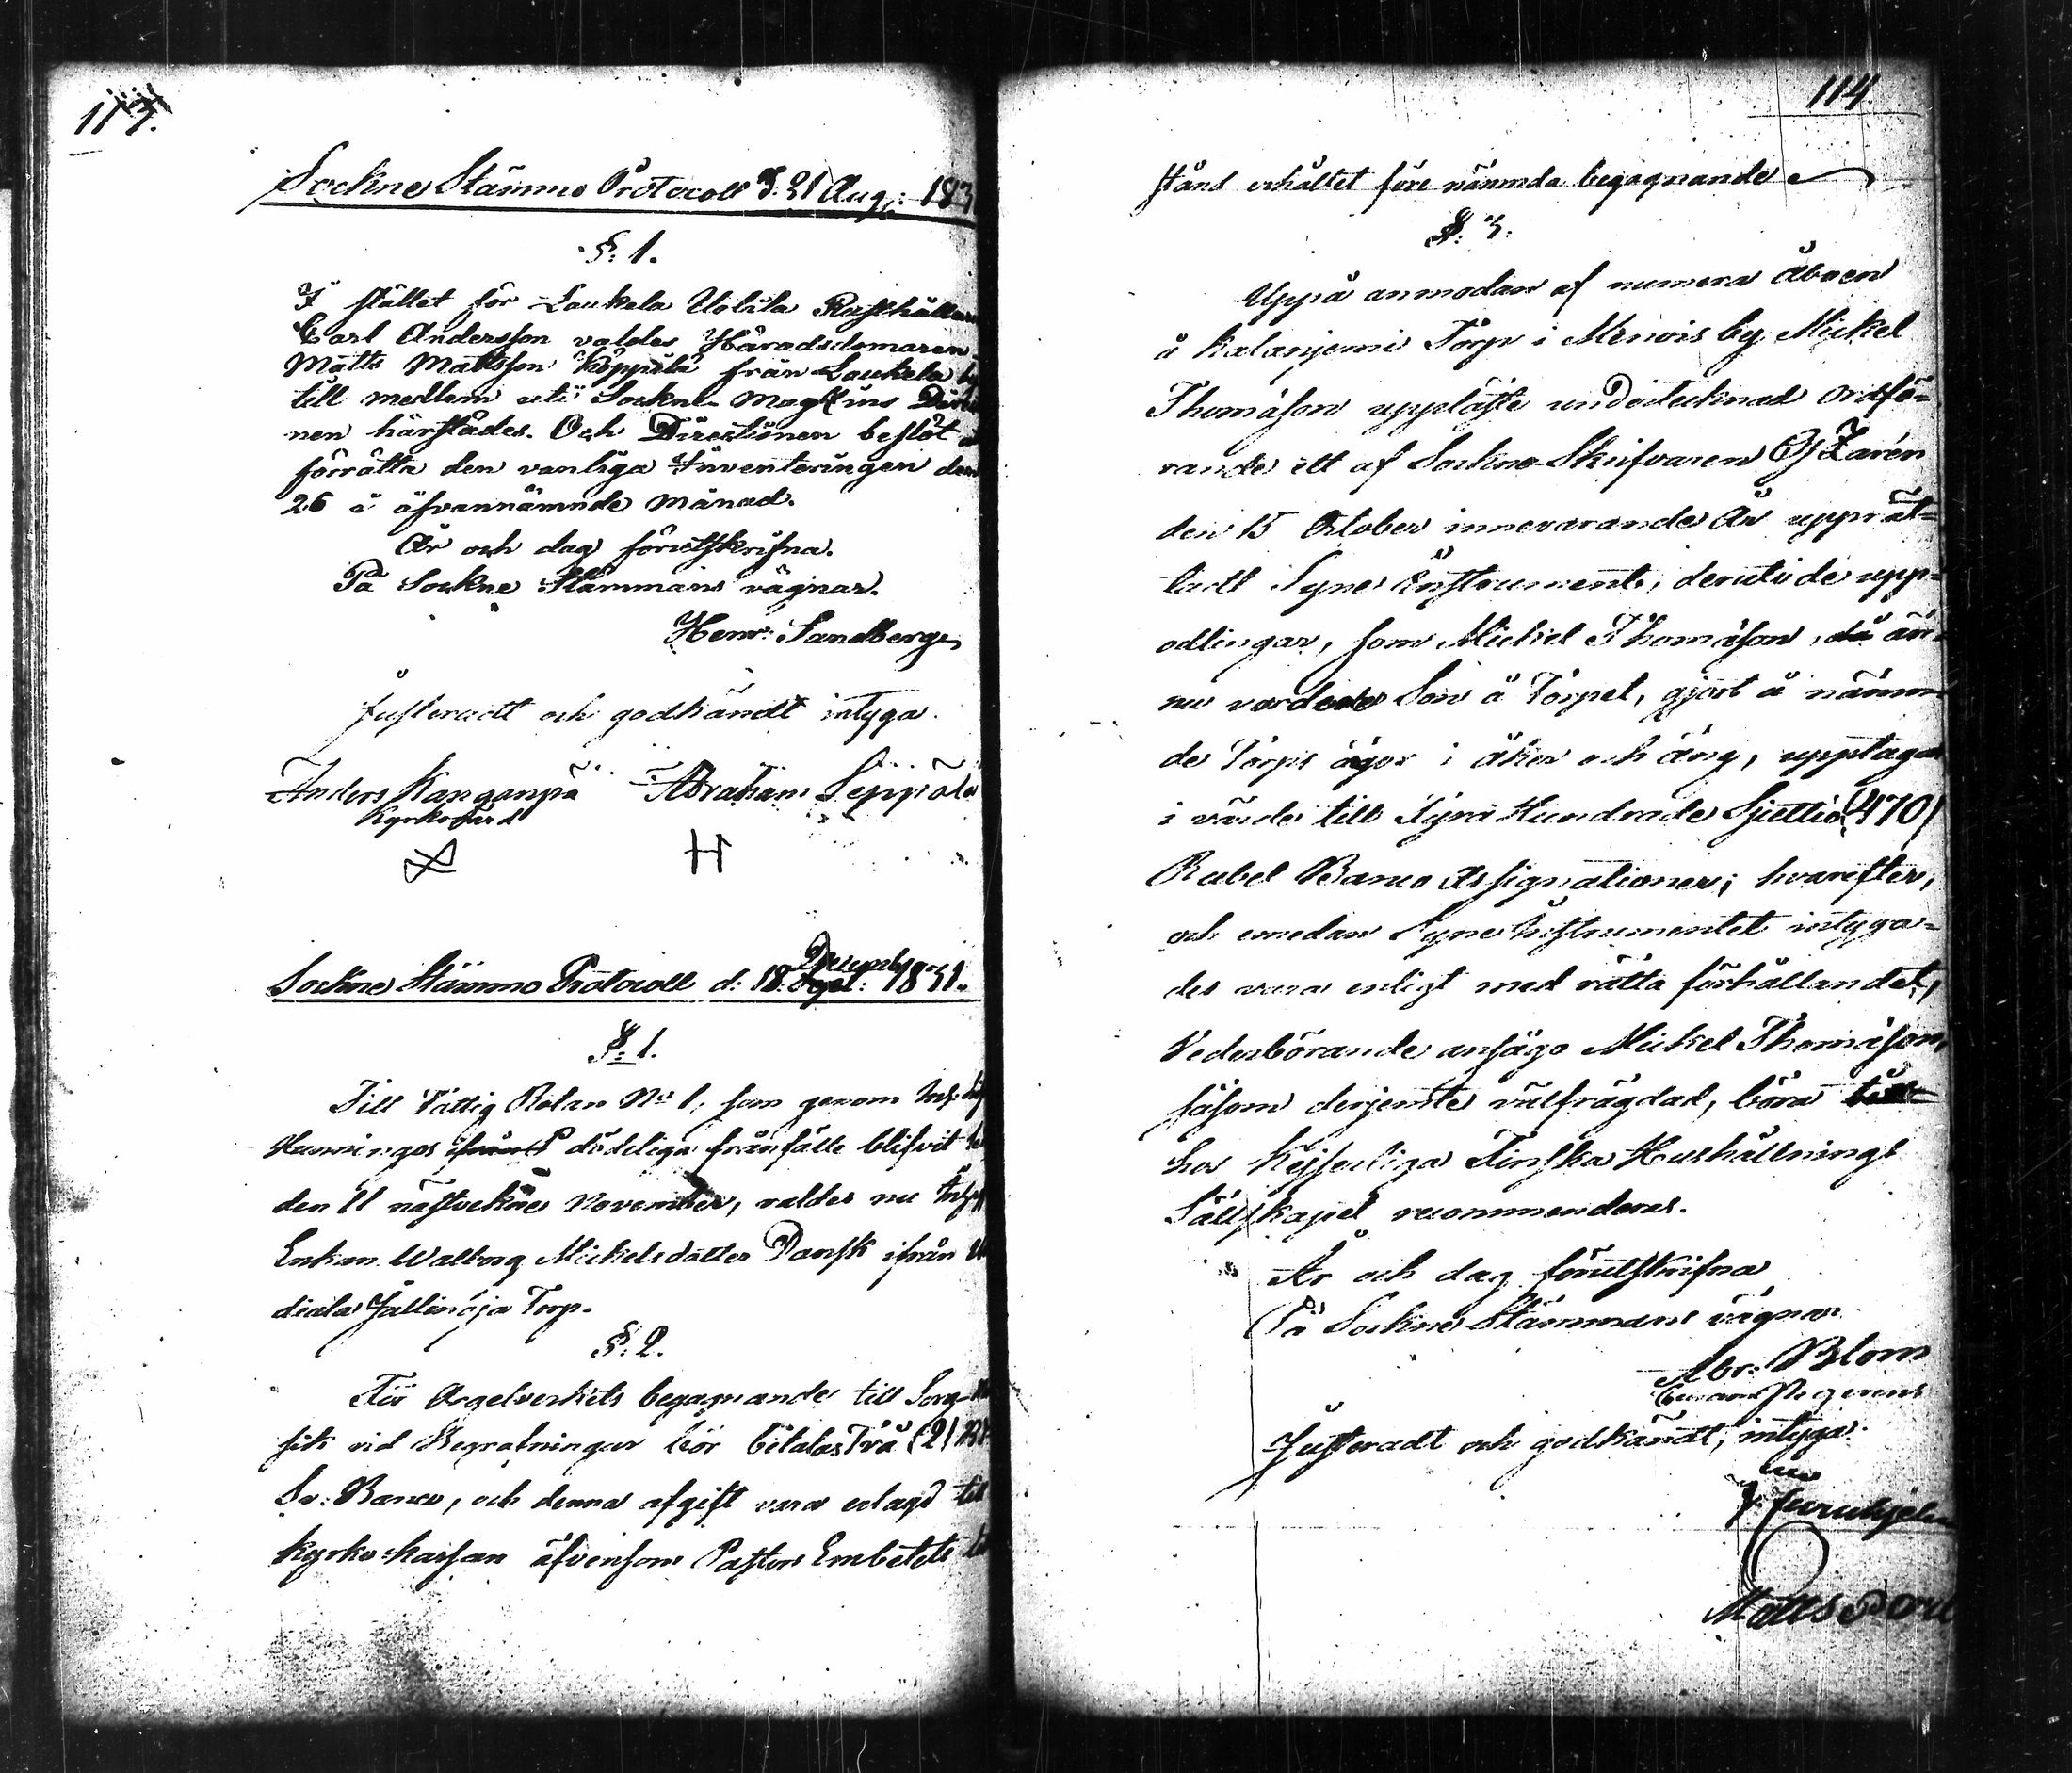 113.
Sockne Stämmo Protocoll d. 21 Aug: 183
§: 1.
I stället för Laukela Uotila Rusthållaren
Carl Andersson valdes Häradsdomaren
Matts Mattsson Köppilä från Laukela by
till medlem uti Sockne Magazins Direc
nen härstädes. Och Directionen beslöt
förrätta den vanliga Inventeringen den
26 i åfvannämnde månad.
År och dag förutskrifna.
På Sockne Stämmans vägnar.
Henr: Sandberg
Justeradt och godkändt intyga.
Anders Kangenpä Abraham Seppälä
Kyrkovärd
H
Sockne Stämmo Protocoll d: 18 Decemb: 1831.
§: 1.
Till Fattig Rotan No 1, som genom Insp:
Hennings dödeliga frånfälle blifvit
den 11 nästvekne November, valdes nu
Enkan Walborg Mickelsdotter Dansk ifrån
diala Jallinoja Torp.
§. 2.
För Orgelverkets begagnande till Sorg
sik vid Begrafningar bör betalas Två (2)
Sv: Banco, och denna afgift vara erlagd till
Kyrko-kassan äfvensom Pastors Embetets
114.
stånd erhållet före nämnda begagnande
§: 3.
Uppå anmodan af numera Åboen
å Kalanjemi Torp i Menois by Mickel
Thomásson uppläste undertecknad Ordfö-
rande ett af Sockne-Skrifvaren Zarén
den 15 October innevarande År upprät-
tadt Syne Instrument, deruti de upp-
odlingar, som Mickel Thomásson, då än-
nu Son å Torpet, gjort å nämn
de Torps ägor i åker och äng, upptagas
i värde till Fyra Hundrade Sjuttio (470)
Rubel Banco Assignationer; hvarefter,
och emedan Syne Instrumentet intyga-
des vara enligt med rätta förhållandet,
Vederbörande ansågo Mickel Thomásson,
såsom derjemte välfrägdad, böra
hos Kejserliga Finska Hushållnings
Sällskapet recommenderas.
År och dag förutskrifna
På Sockne Stämmans vägnar
Abr: Blom
Justeradt och godkändt, intyga
J. Furuhjelm
Matts